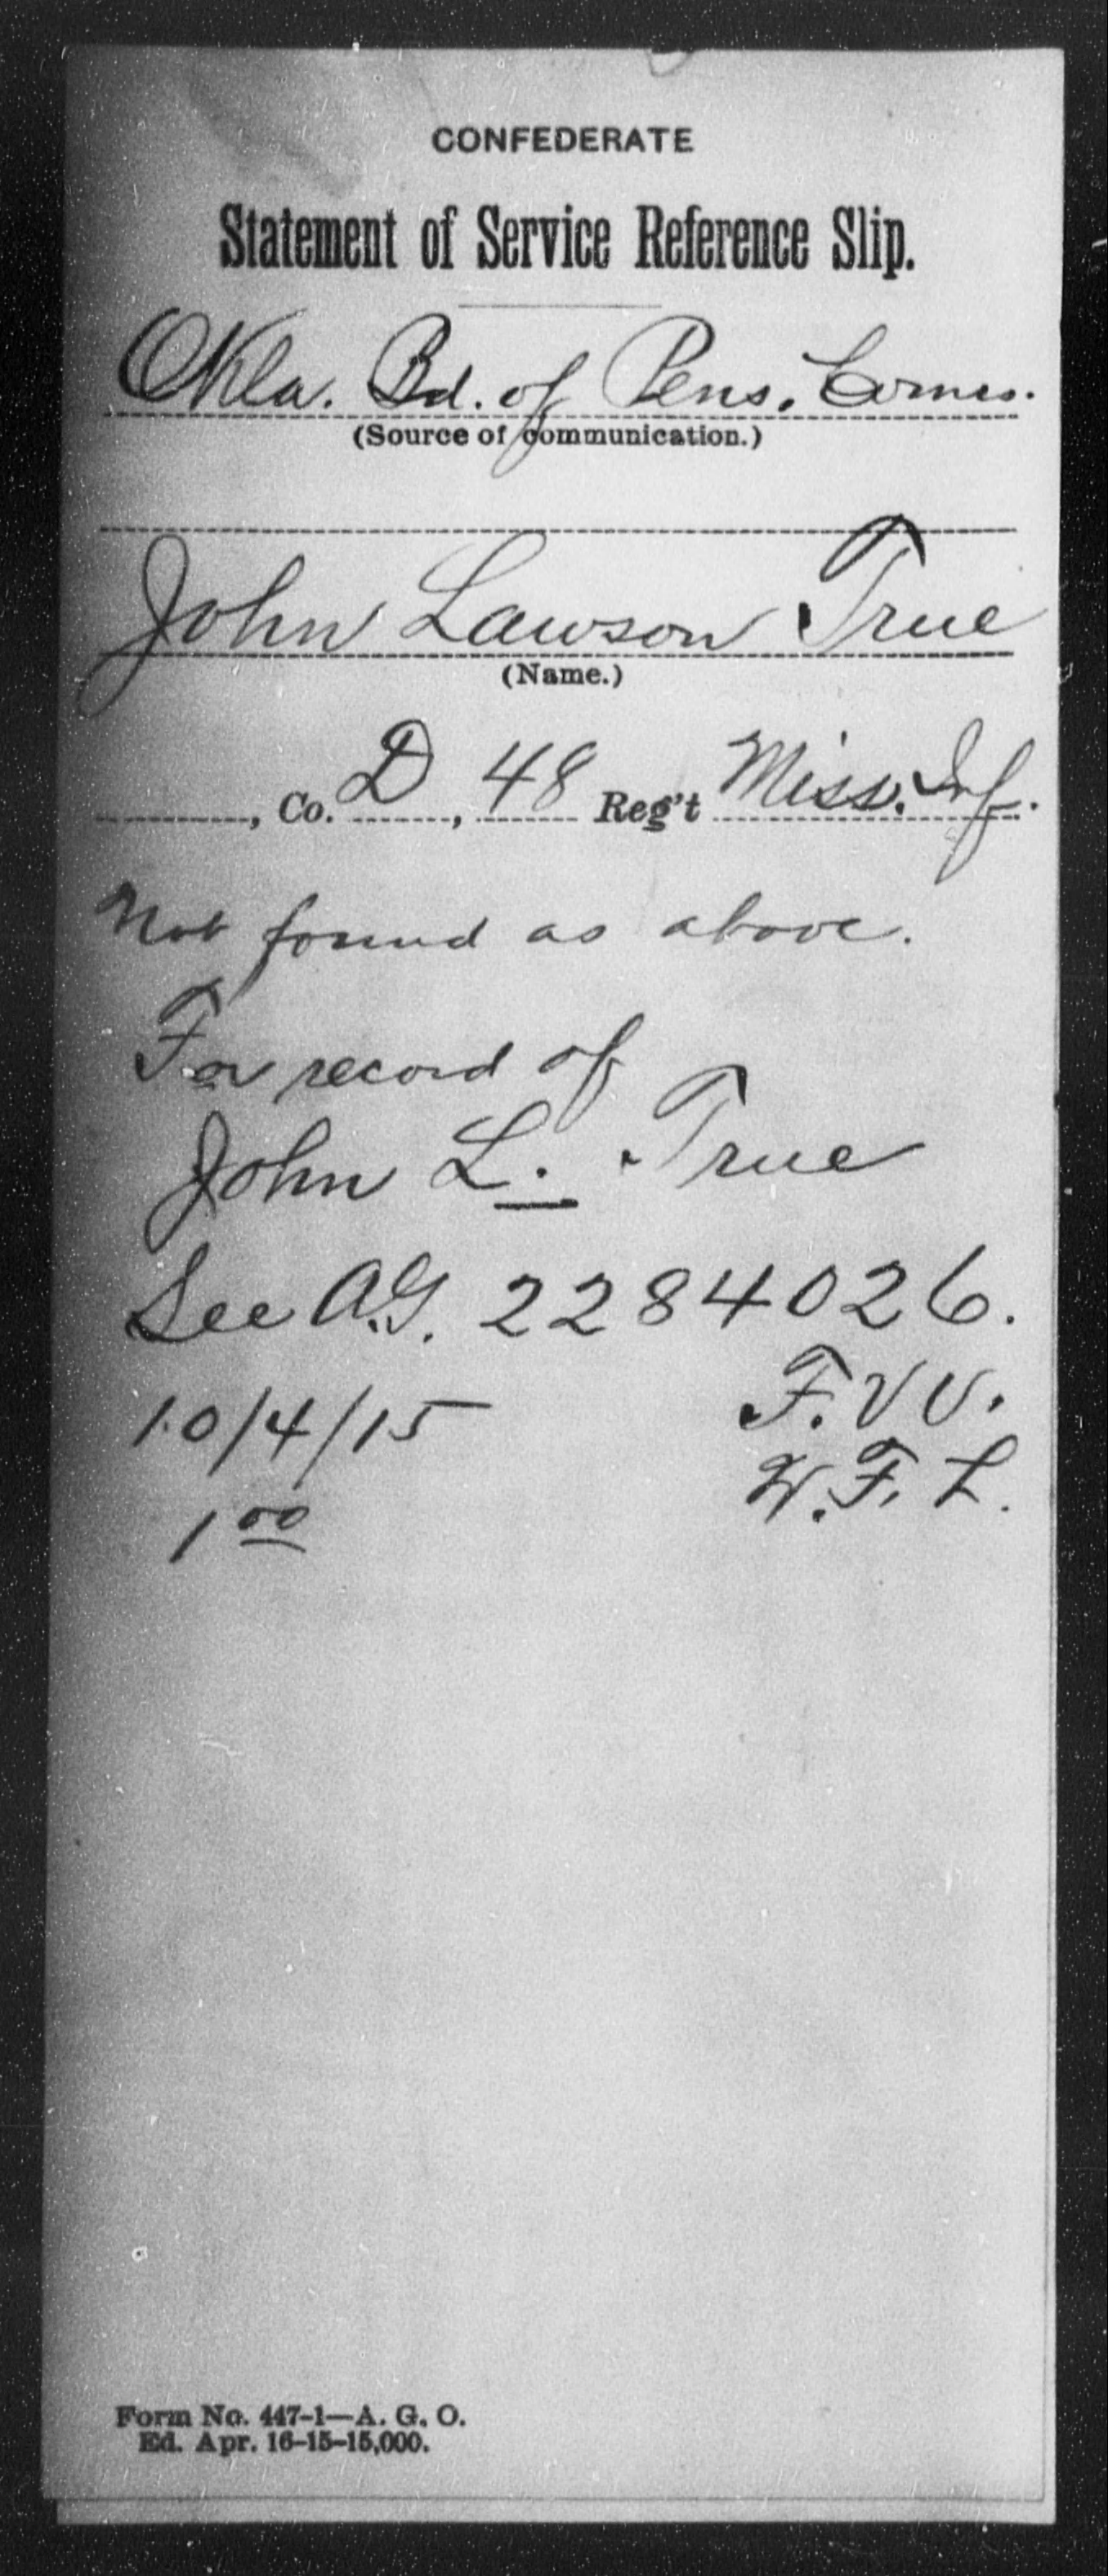 CONFEDERATE
Statement of Service Reference Slip.
Okla. Bd. of Pens. Comrs.
(Source of communication.)
John Lawson True
(Name.)
, Co. D, 48 Reg't Miss. Inf.
Not found as above.
For record of
John L. True
See A.G. 2284026.
10/4/15 F.V.V.
1 00 W.F.L.
Form No. 447-1—A. G. O.
Ed. Apr. 16-15-15,000.